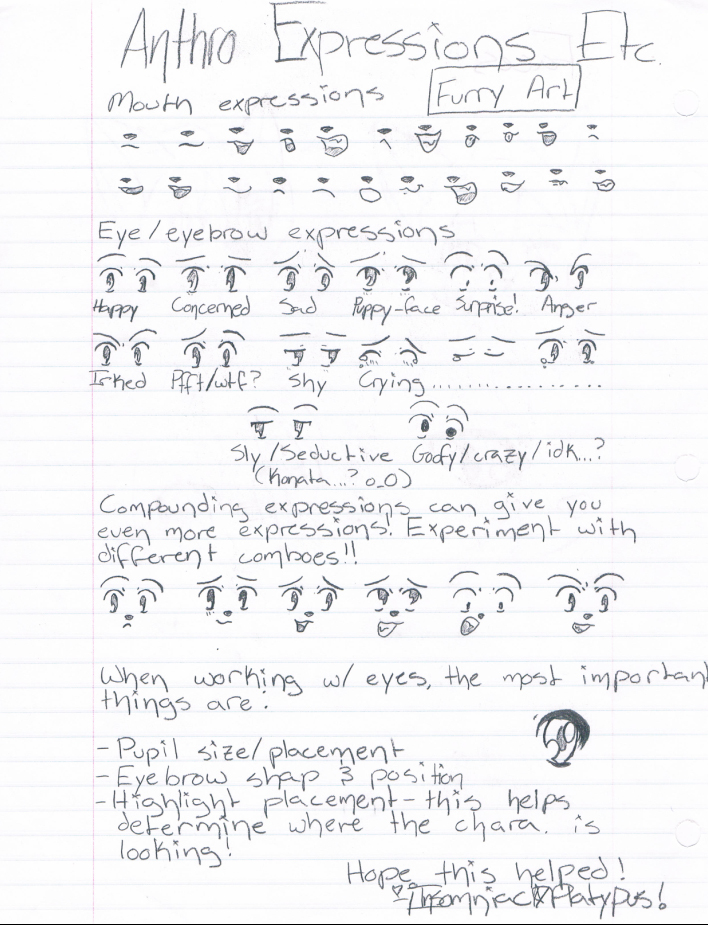 Anthro Expressions Etc.
Mouth expressions Furry Art
Eye/eyebrow expressions
Happy Concerned Sad Puppy-face Surprise! Anger
Irked Pfft/wtf? Shy Crying....................
Sly/Seductive Goofy/crazy/idk...?
(Konata...? o_O)
Compounding expressions can give you
even more expressions! Experiment with
different comboes!!
When working w/ eyes, the most important
things are:
- Pupil size/placement
- Eyebrow shap & position
- Highlight placement - this helps
determine where the chara. is
looking!
Hope this helped!
- Insomniac♡Platypus!